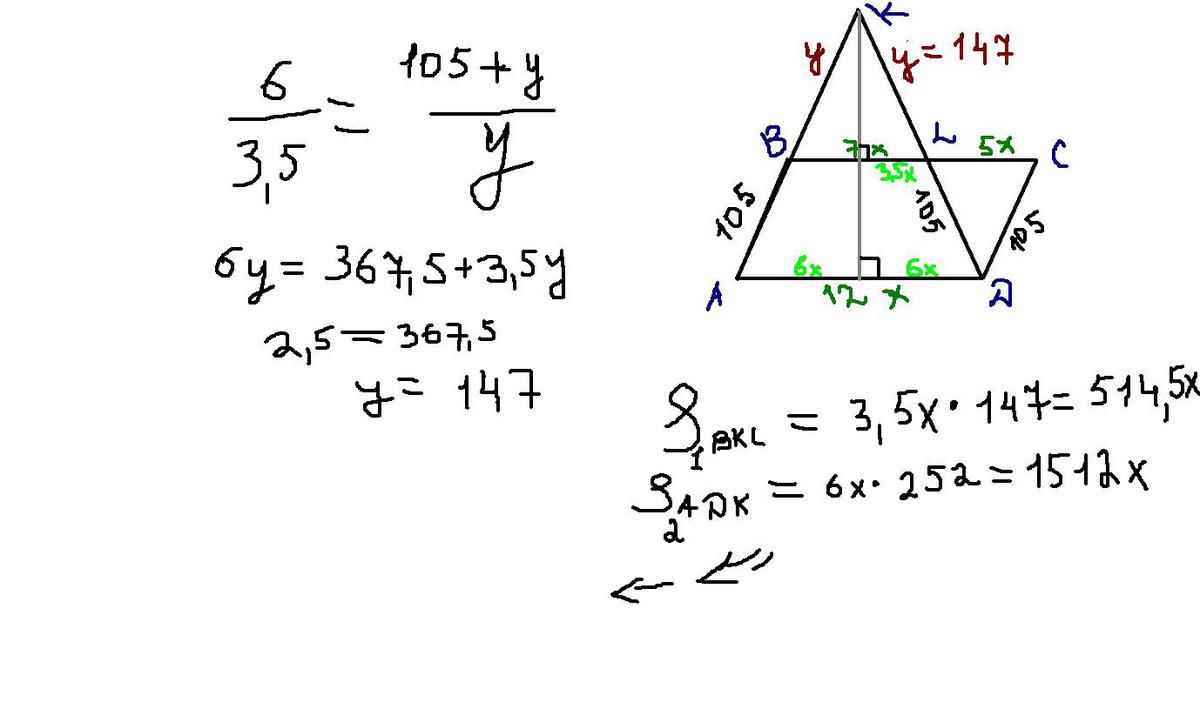 6/3,5 = 105+y/y
6y = 367,5+3,5y
2,5 = 367,5
y = 147
K
y
y = 147
B
7 x
L
5x
C
3,5x
105
105
105
6x
6x
A
12 x
D
S₁ BKL = 3,5x · 147 = 514,5x
S₂ ADK = 6x · 252 = 1512x